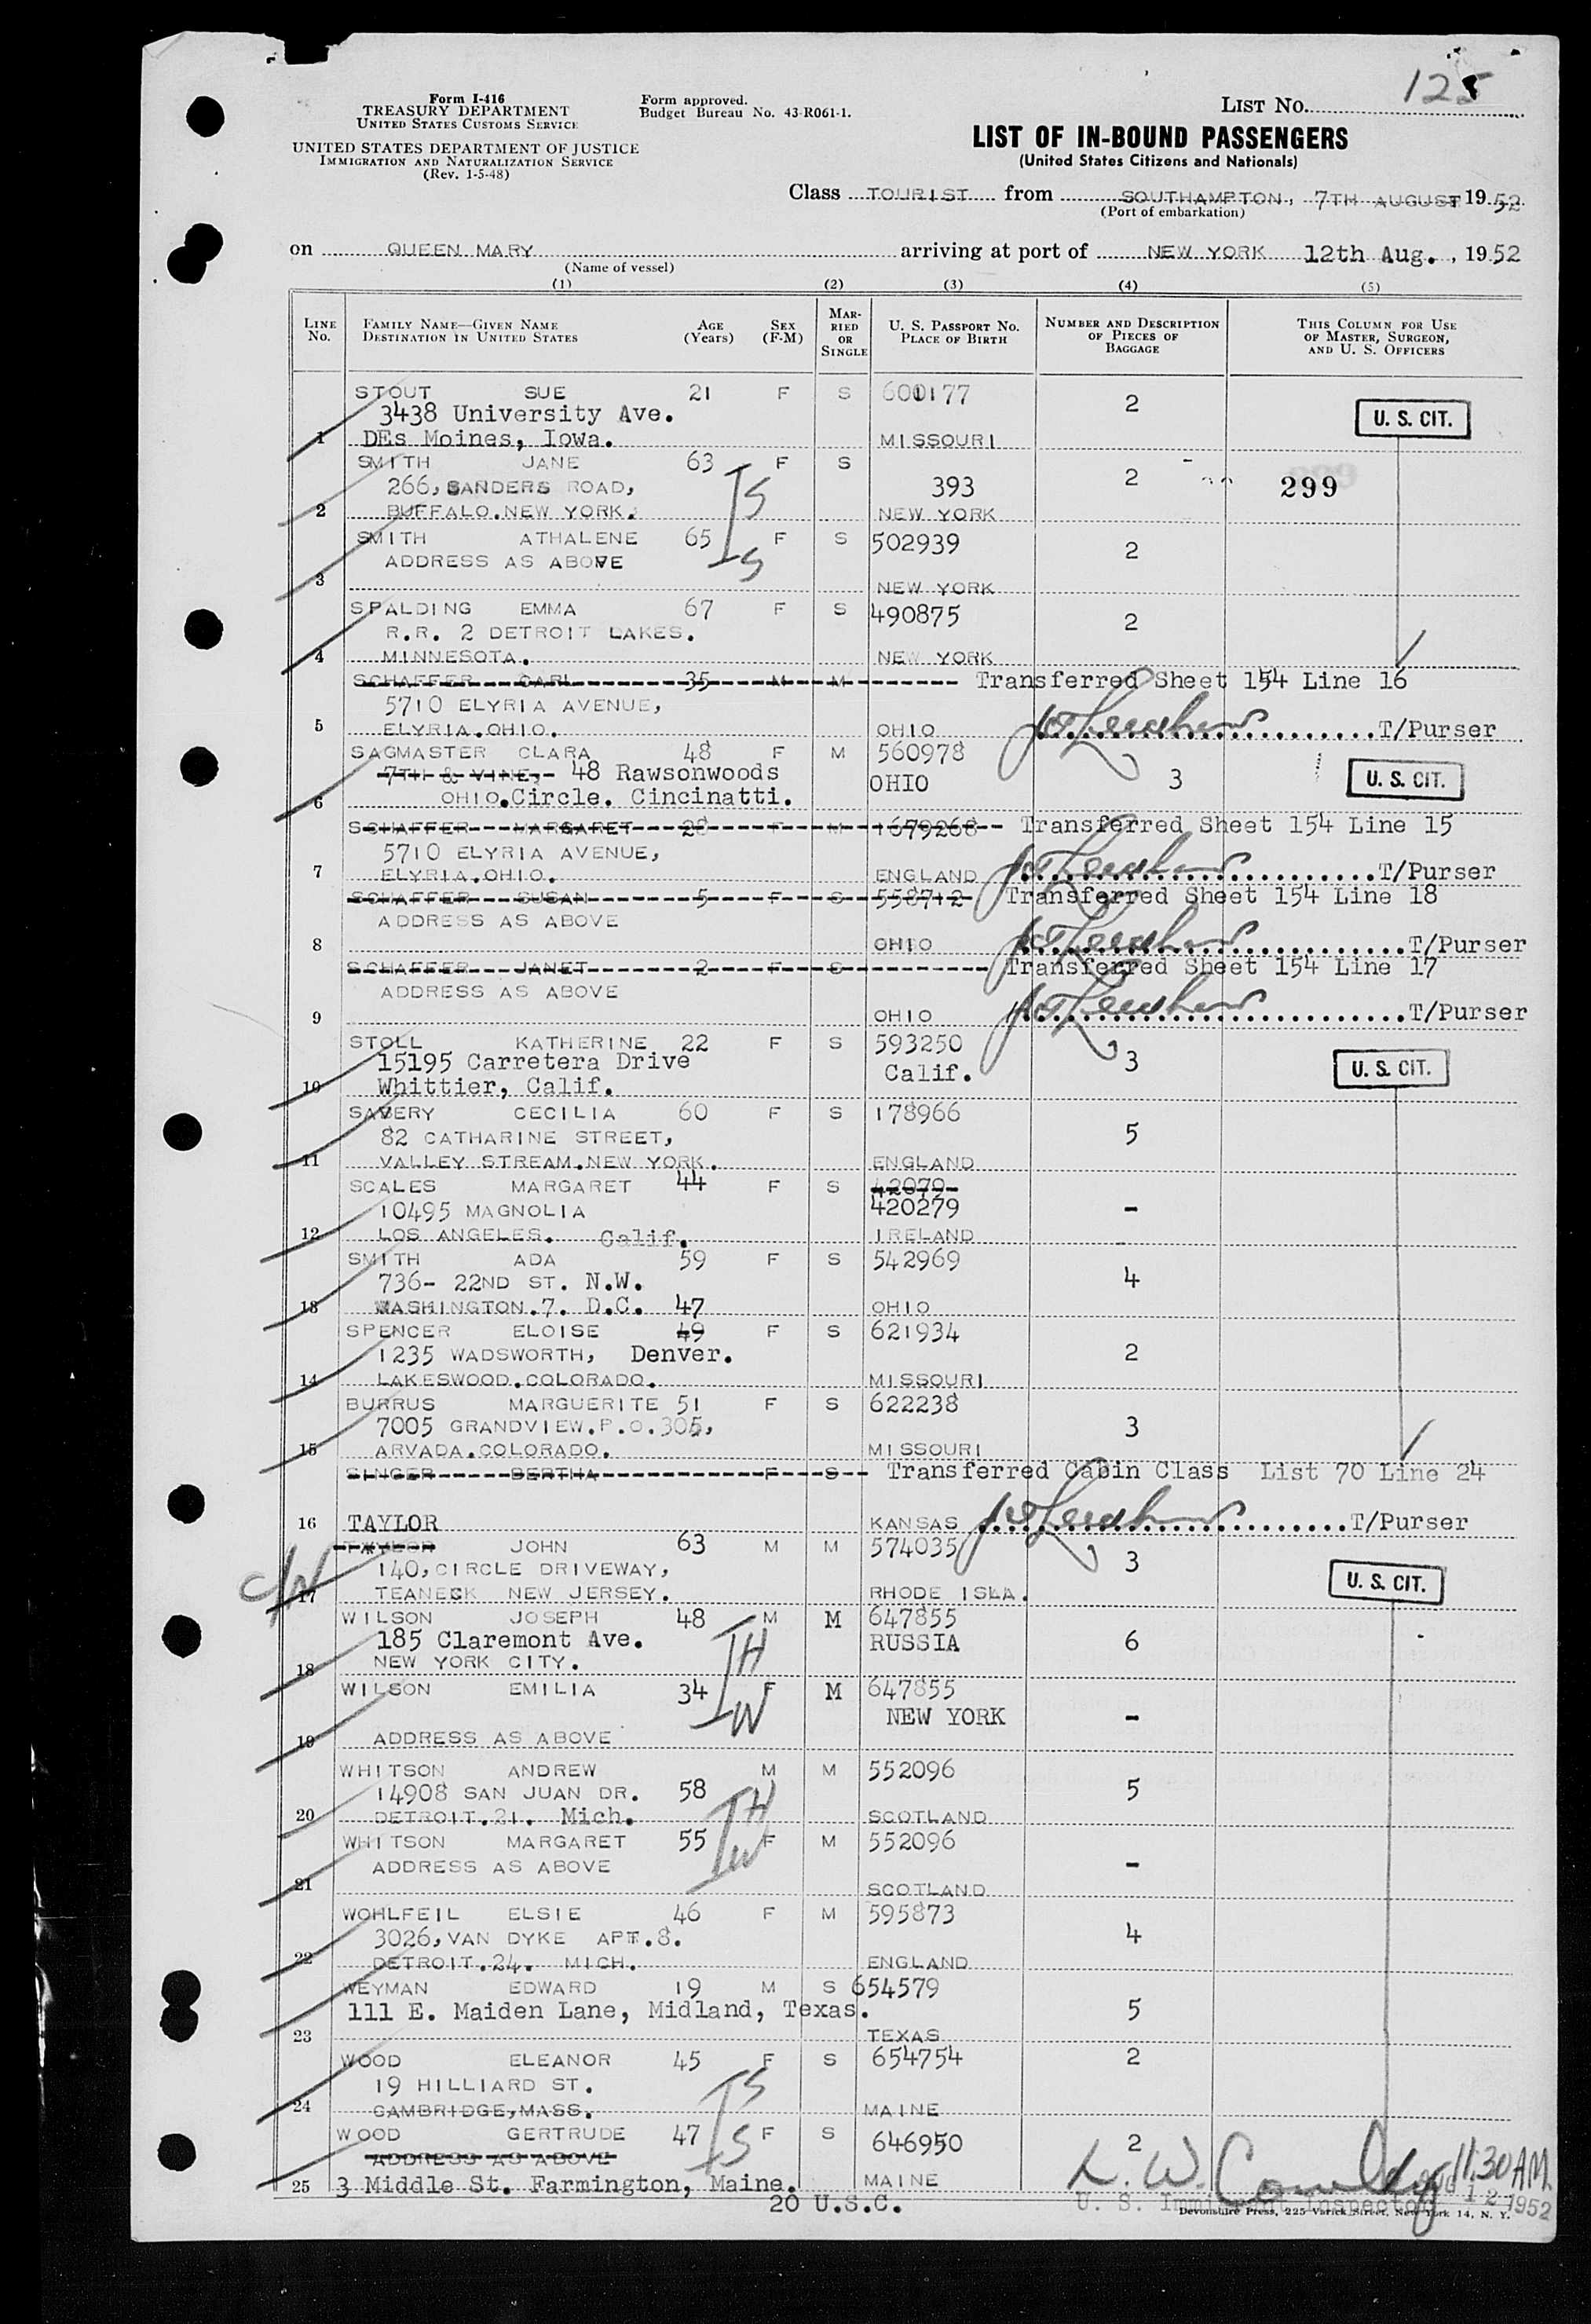 125
Form I-416
TREASURY DEPARTMENT
UNITED STATES CUSTOMS SERVICE
UNITED STATES DEPARTMENT OF JUSTICE
IMMIGRATION AND NATURALIZATION SERVICE
(Rev. 1-5-48)
Form approved.
Budget Bureau No. 43-R061-1.
LIST NO.
LIST OF IN-BOUND PASSENGERS
(United States Citizens and Nationals)
Class TOURIST from SOUTHAMPTON, 7TH AUGUST 1952
(Port of embarkation)
on QUEEN MARY arriving at port of NEW YORK 12th Aug. , 1952
(Name of vessel)
(1) (2) (3) (4) (5)
LINE NO. FAMILY NAME—GIVEN NAME DESTINATION IN UNITED STATES AGE (Years) SEX (F-M) MARRIED OR SINGLE U. S. PASSPORT NO. PLACE OF BIRTH NUMBER AND DESCRIPTION OF PIECES OF BAGGAGE THIS COLUMN FOR USE OF MASTER, SURGEON, AND U. S. OFFICERS
STOUT SUE 21 F S 600177 2 U. S. CIT.
3438 University Ave.
1 DEs Moines, Iowa. MISSOURI
SMITH JANE 63 F S
266, SANDERS ROAD, 393 2 299
2 BUFFALO.NEW YORK. NEW YORK
SMITH ATHALENE 65 F S 502939 2
ADDRESS AS ABOVE
3 NEW YORK
SPALDING EMMA 67 F S 490875 2
R.R. 2 DETROIT LAKES.
4 MINNESOTA. NEW YORK
SCHAFFER CARL 35 M M Transferred Sheet 154 Line 16
5710 ELYRIA AVENUE,
5 ELYRIA.OHIO. OHIO T/Purser
SAGMASTER CLARA 48 F M 560978
7TH & VINE, 48 Rawsonwoods OHIO 3 U. S. CIT.
6 OHIO.Circle. Cincinatti.
SCHAFFER MARGARET 28 F M 1679268 Transferred Sheet 154 Line 15
5710 ELYRIA AVENUE,
7 ELYRIA.OHIO. ENGLAND T/Purser
SCHAFFER SUSAN 5 F S 558712 Transferred Sheet 154 Line 18
ADDRESS AS ABOVE
8 OHIO T/Purser
SCHAFFER JANET 2 F S Transferred Sheet 154 Line 17
ADDRESS AS ABOVE
9 OHIO T/Purser
STOLL KATHERINE 22 F S 593250
15195 Carretera Drive Calif. 3 U. S. CIT.
10 Whittier, Calif.
SAVERY CECILIA 60 F S 178966
82 CATHARINE STREET, 5
11 VALLEY STREAM.NEW YORK. ENGLAND
SCALES MARGARET 44 F S 42079
10495 MAGNOLIA 420279 -
12 LOS ANGELES. Calif. IRELAND
SMITH ADA 59 F S 542969
736- 22ND ST. N.W. 4
13 WASHINGTON.7. D.C. 47 OHIO
SPENCER ELOISE 49 F S 621934
1235 WADSWORTH, Denver. 2
14 LAKESWOOD.COLORADO. MISSOURI
BURRUS MARGUERITE 51 F S 622238
7005 GRANDVIEW.P.O.305, 3
15 ARVADA.COLORADO. MISSOURI
SINGER BERTHA F S Transferred Cabin Class List 70 Line 24
16 TAYLOR KANSAS T/Purser
TAYLOR JOHN 63 M M 574035
140,CIRCLE DRIVEWAY, 3 U. S. CIT.
C/W 17 TEANECK NEW JERSEY. RHODE ISLA.
WILSON JOSEPH 48 M M 647855
185 Claremont Ave. RUSSIA 6
18 NEW YORK CITY.
WILSON EMILIA 34 F M 647855
NEW YORK -
19 ADDRESS AS ABOVE
WHITSON ANDREW M M 552096
14908 SAN JUAN DR. 58 5
20 DETROIT.21. Mich. SCOTLAND
WHITSON MARGARET 55 F M 552096
ADDRESS AS ABOVE -
21 SCOTLAND
WOHLFEIL ELSIE 46 F M 595873
3026,VAN DYKE APT.8. 4
22 DETROIT.24. MICH. ENGLAND
WEYMAN EDWARD 19 M S 654579
111 E. Maiden Lane, Midland, Texas. 5
23 TEXAS
WOOD ELEANOR 45 F S 654754 2
19 HILLIARD ST.
24 CAMBRIDGE,MASS. MAINE
WOOD GERTRUDE 47 F S 646950 2
ADDRESS AS ABOVE
25 3 Middle St. Farmington, Maine. MAINE
11:30 AM
20 U.S.C. U. S. Immigrant Inspector 12 1952
Devonshire Press, 225 Varick Street, New York 14, N. Y.